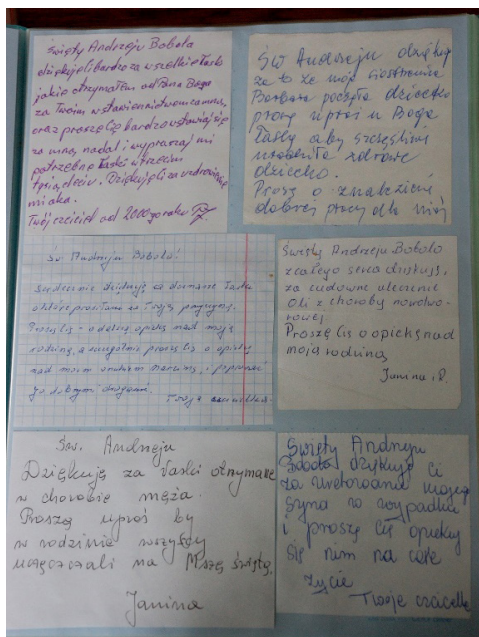 Święty Andrzeju Bobola
dziękuję Ci bardzo za wszelkie łaski
jakie otrzymałem od Pana Boga
za Twoim wstawiennictwem za mną
oraz proszę Cię bardzo wstawiaj się
za mną nadal i wypraszaj mi
potrzebne łaski w trzecim
tysiącleciu. Dziękuję Ci za uzdrowienie
mi oka.
Twój czciciel od 2000go roku
Św Andrzeju dziękuję
za to że moja siostrzenica
Barbara poczęła dzieciątko
proszę uproś u Boga
łaskę aby szczęśliwie
urodziła zdrowe
dziecko.
Proszę o znalezienie
dobrej pracy dla niej
Św Andrzeju Bobolo!
Serdecznie dziękuję za doznane łaski
o które prosiłam za Twoją przyczyną.
Proszę Cię o dalszą opiekę nad moją
rodziną, a szczególnie proszę Cię o opiekę
nad moim wnukiem
Go dobrymi drogami.
Twoja czcicielka
Święty Andrzeju Bobolo
z całego serca dziękuję,
za cudowne uleczenie
Oli z choroby nowotwo-
rowej
Proszę Cię o opiekę nad
moją rodziną
Janina
Św. Andrzeju
Dziękuję za łaski otrzymane
w chorobie męża.
Proszę uproś by
w rodzinie wszyscy
uczęszczali na Mszę świętą.
Janina
Święty Andrzeju
Bobolo dziękuję Ci
za uratowanie mojego
syna w wypadku
i proszę Cię opiekuj
się nim na całe
życie
Twoje